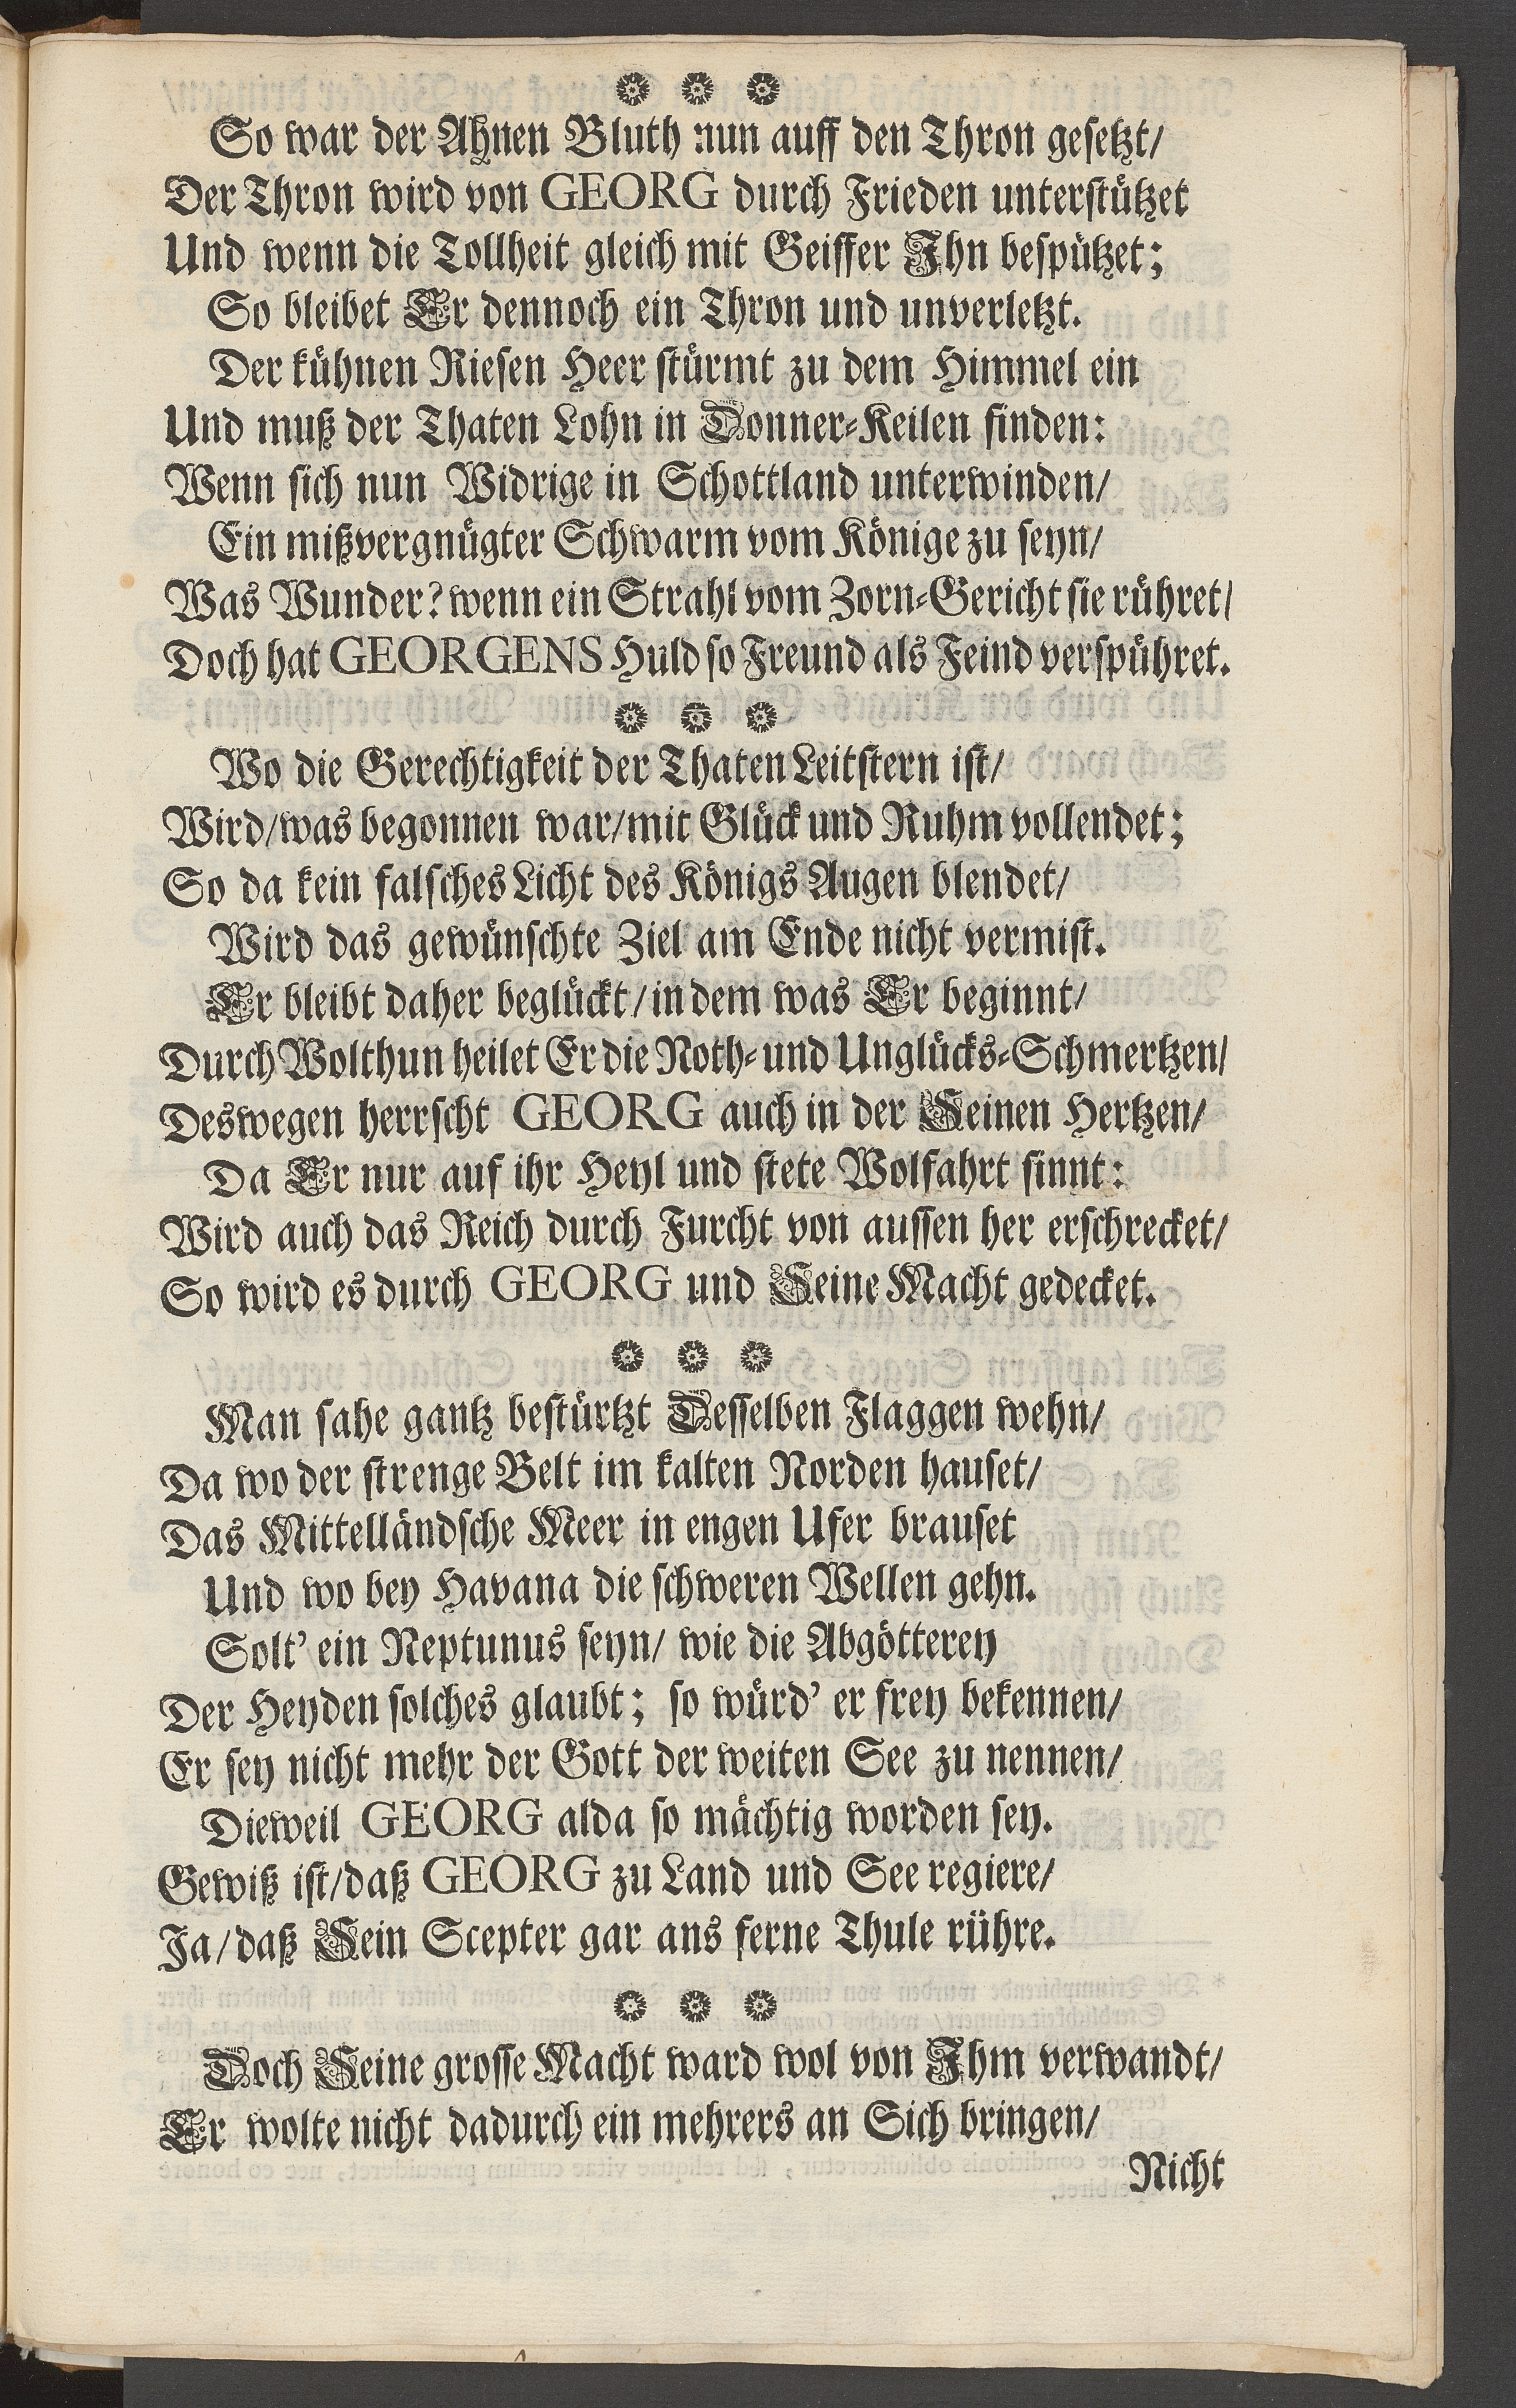 So war der Ahnen Bluth nun auff den Thron gesetzt/
Der Thron wird von GEORG durch Frieden unterstützet
Und wenn die Tollheit gleich mit Geiffer Ihn bespützet;
So bleibet Er dennoch ein Thron und unverletzt.
Der kühnen Riesen Heer stürmt zu dem Himmel ein
Und muß der Thaten Lohn in Donner-Keilen finden:
Wenn sich nun Widrige in Schottland unterwinden/
Ein mißvergnügter Schwarm vom Könige zu seyn/
Was Wunder? wenn ein Strahl vom Zorn-Gericht sie rühret/
Doch hat GEORGENS Huld so Freund als Feind verspühret.
Wo die Gerechtigkeit der Thaten Leitstern ist/
Wird/was begonnen war/mit Glück und Ruhm vollendet;
So da kein falsches Licht des Königs Augen blendet/
Wird das gewünschte Ziel am Ende nicht vermist.
Er bleibt daher beglückt/in dem was Er beginnt/
Durch Wolthun heilet Er die Noth- und Unglücks-Schmertzen/
Deswegen herrscht GEORG auch in der Seinen Hertzen/
Da Er nur auf ihr Heyl und stete Wolfahrt sinnt:
Wird auch das Reich durch Furcht von aussen her erschrecket/
So wird es durch GEORG und Seine Macht gedecket.
Man sahe gantz bestürtzt Desselben Flaggen wehn/
Da wo der strenge Belt im kalten Norden hauset/
Das Mittelländsche Meer in engen Ufer brauset
Und wo bey Havana die schweren Wellen gehn.
Solt' ein Neptunus seyn/ wie die Abgötterey
Der Heyden solches glaubt; so würd' er frey bekennen/
Er sey nicht mehr der Gott der weiten See zu nennen/
Dieweil GEORG alda so mächtig worden sey.
Gewiß ist/daß GEORG zu Land und See regiere/
Ja/daß Sein Scepter gar ans ferne Thule rühre.
Doch Seine grosse Macht ward wol von Ihm verwandt/
Er wolte nicht dadurch ein mehrers an Sich bringen/
Nicht